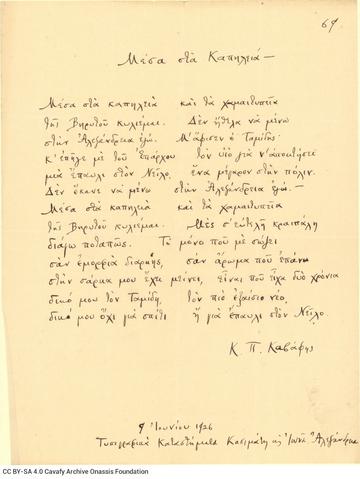 67
Μέσα στα Καπηλειά —
Μέσα στα καπηλειά και τα χαμαιτυπεία
της Βηρυτού κυλιέμαι. Δεν ήθελα να μένω
στην Αλεξάνδρεια εγώ. Μ' άφισεν ο Ταμίδης·
κ' επήγε με του Επάρχου τον υιό για ν' αποκτήσει
μια έπαυλι στον Νείλο, ένα μέγαρον στην πόλιν.
Δεν έκανε να μένω στην Αλεξάνδρεια εγώ. —
Μέσα στα καπηλειά και τα χαμαιτυπεία
της Βηρυτού κυλιέμαι. Μες σ' ευτελή κραιπάλη
διάγω ποταπώς. Το μόνο που με σώζει
σαν εμορφιά διαρκής, σαν άρωμα που επάνω
στην σάρκα μου έχει μείνει, είναι που είχα δυο χρόνια
δικό μου τον Ταμίδη, τον πιο εξαίσιο νέο,
δικό μου όχι για σπίτι ή για έπαυλι στον Νείλο.
Κ. Π. Καβάφης
9 Ιουνίου 1926
Τυπογραφικά Καταστήματα Κασιμάτη &amp; Ιωνά Αλεξάνδρεια
CC BY-SA 4.0 Cavafy Archive Onassis Foundation